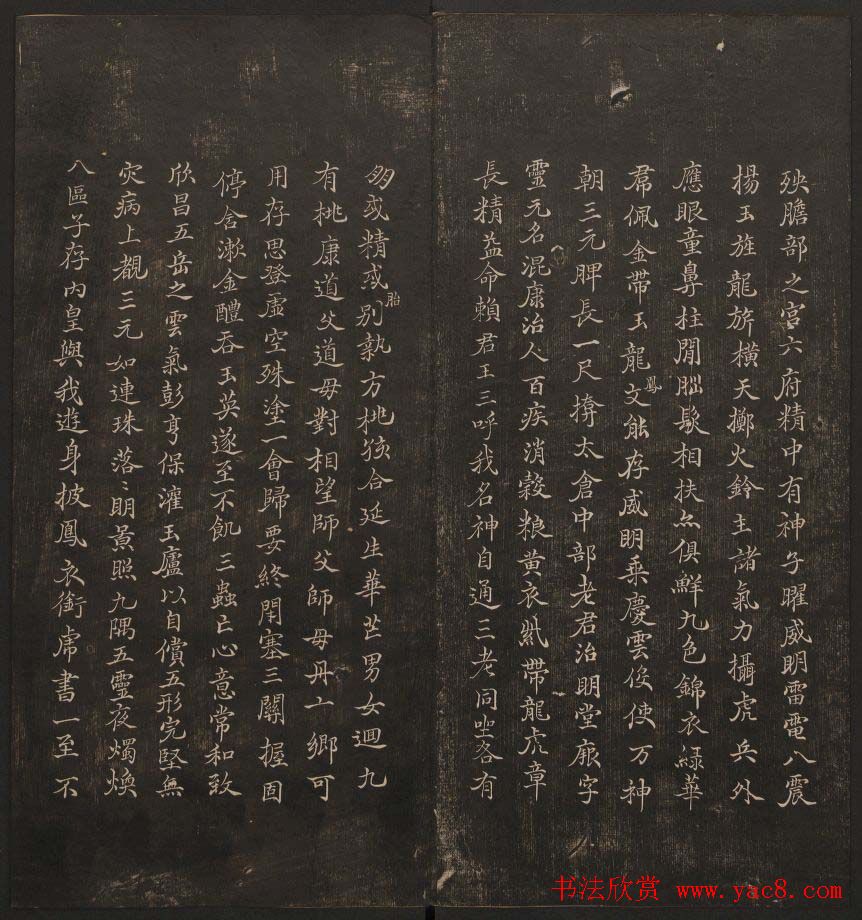 殃膽部之宮六府精中有神子曜威明雷電八震
揚玉旌龍旂橫天擲火鈴主諸氣力攝虎兵外
應眼童鼻柱閒腦髮相扶亦俱鮮九色錦衣綠華
帬佩金帶玉龍文能存威明乘慶雲役使万神
鳳
朝三元脾長一尺揜太倉中部老君治明堂厥字
靈元名混康治人百疾消穀粮黄衣紫帶龍虎章
長精益命賴君王三呼我名神自通三老同坐各有
朋或精或別執方桃孩合延生華芒男女迴九
胎
有桃康道父道母對相望師父師母丹亠鄉可
用存思登虛空殊塗一會歸要終閉塞三關握固
停含漱金醴吞玉英遂至不飢三蟲亡心意常和致
欣昌五岳之雲氣彭亨保灌玉廬以自償五形完堅無
灾病上覩三元如連珠落〻明景照九隅五靈夜燭煥
八區子存內皇與我遊身披鳳衣銜虎書一至不
书法欣赏 www.yac8.com